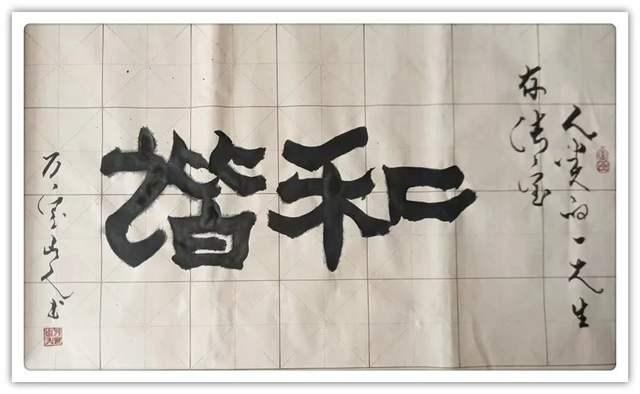 人类的一大生
存法宝
和谐
万宝山人书